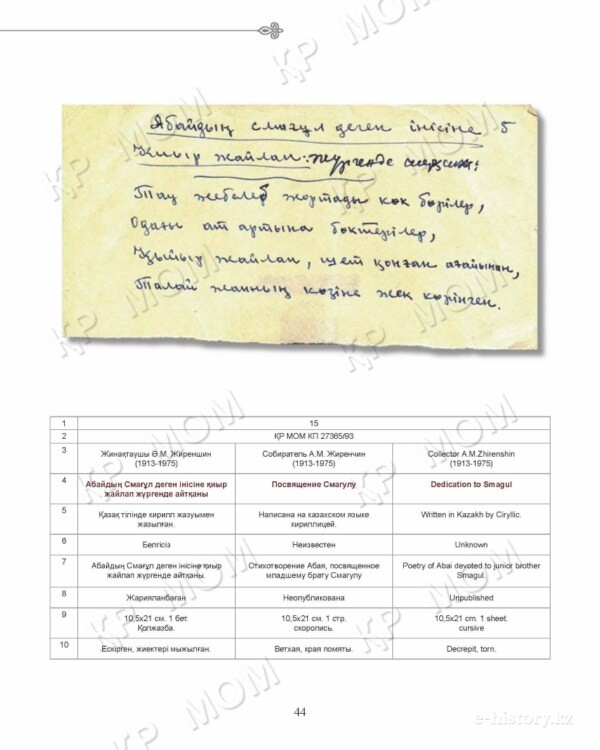 Абайдың смағұл деген інісіне 5
Қиыр жайлап: жүргенде
Тау жебелеб жортады көк бөрілер,
Одағы ат артына бөктерілер,
Қыйыу жайлап, шет қонған ағайынан,
Талай жанның көзіне жек көрінген.
1 15
2 ҚР МОМ КП 27365/93
3 Жинақтаушы Ә.М. Жиреншин Собиратель А.М. Жиренчин Collector A.M.Zhirenshin
(1913-1975) (1913-1975) (1913-1975)
4 Абайдың Смағұл деген інісіне қиыр Посвящение Смагулу Dedication to Smagul
жайлап жүргенде айтқаны
5 Қазақ тілінде кирилл жазуымен Написана на казахском языке Written in Kazakh by Ciryllic.
жазылған. кириллицей.
6 Белгісіз Неизвестен Unknown
7 Абайдың Смағұл деген інісіне қиыр Стихотворение Абая, посвященное Poetry of Abai devoted to junior brother
жайлап жүргенде айтқаны. младшему брату Смагулу Smagul.
8 Жарияланбаған Неопубликована Unpublished
9 10,5х21 см. 1 бет. 10,5х21 см. 1 стр. 10,5x21 cm. 1 sheet.
Қолжазба. скоропись. cursive
10 Ескірген, жиектері мыжылған. Ветхая, края помяты. Decrepit, torn.
44
ҚР МОМ
e-history.kz